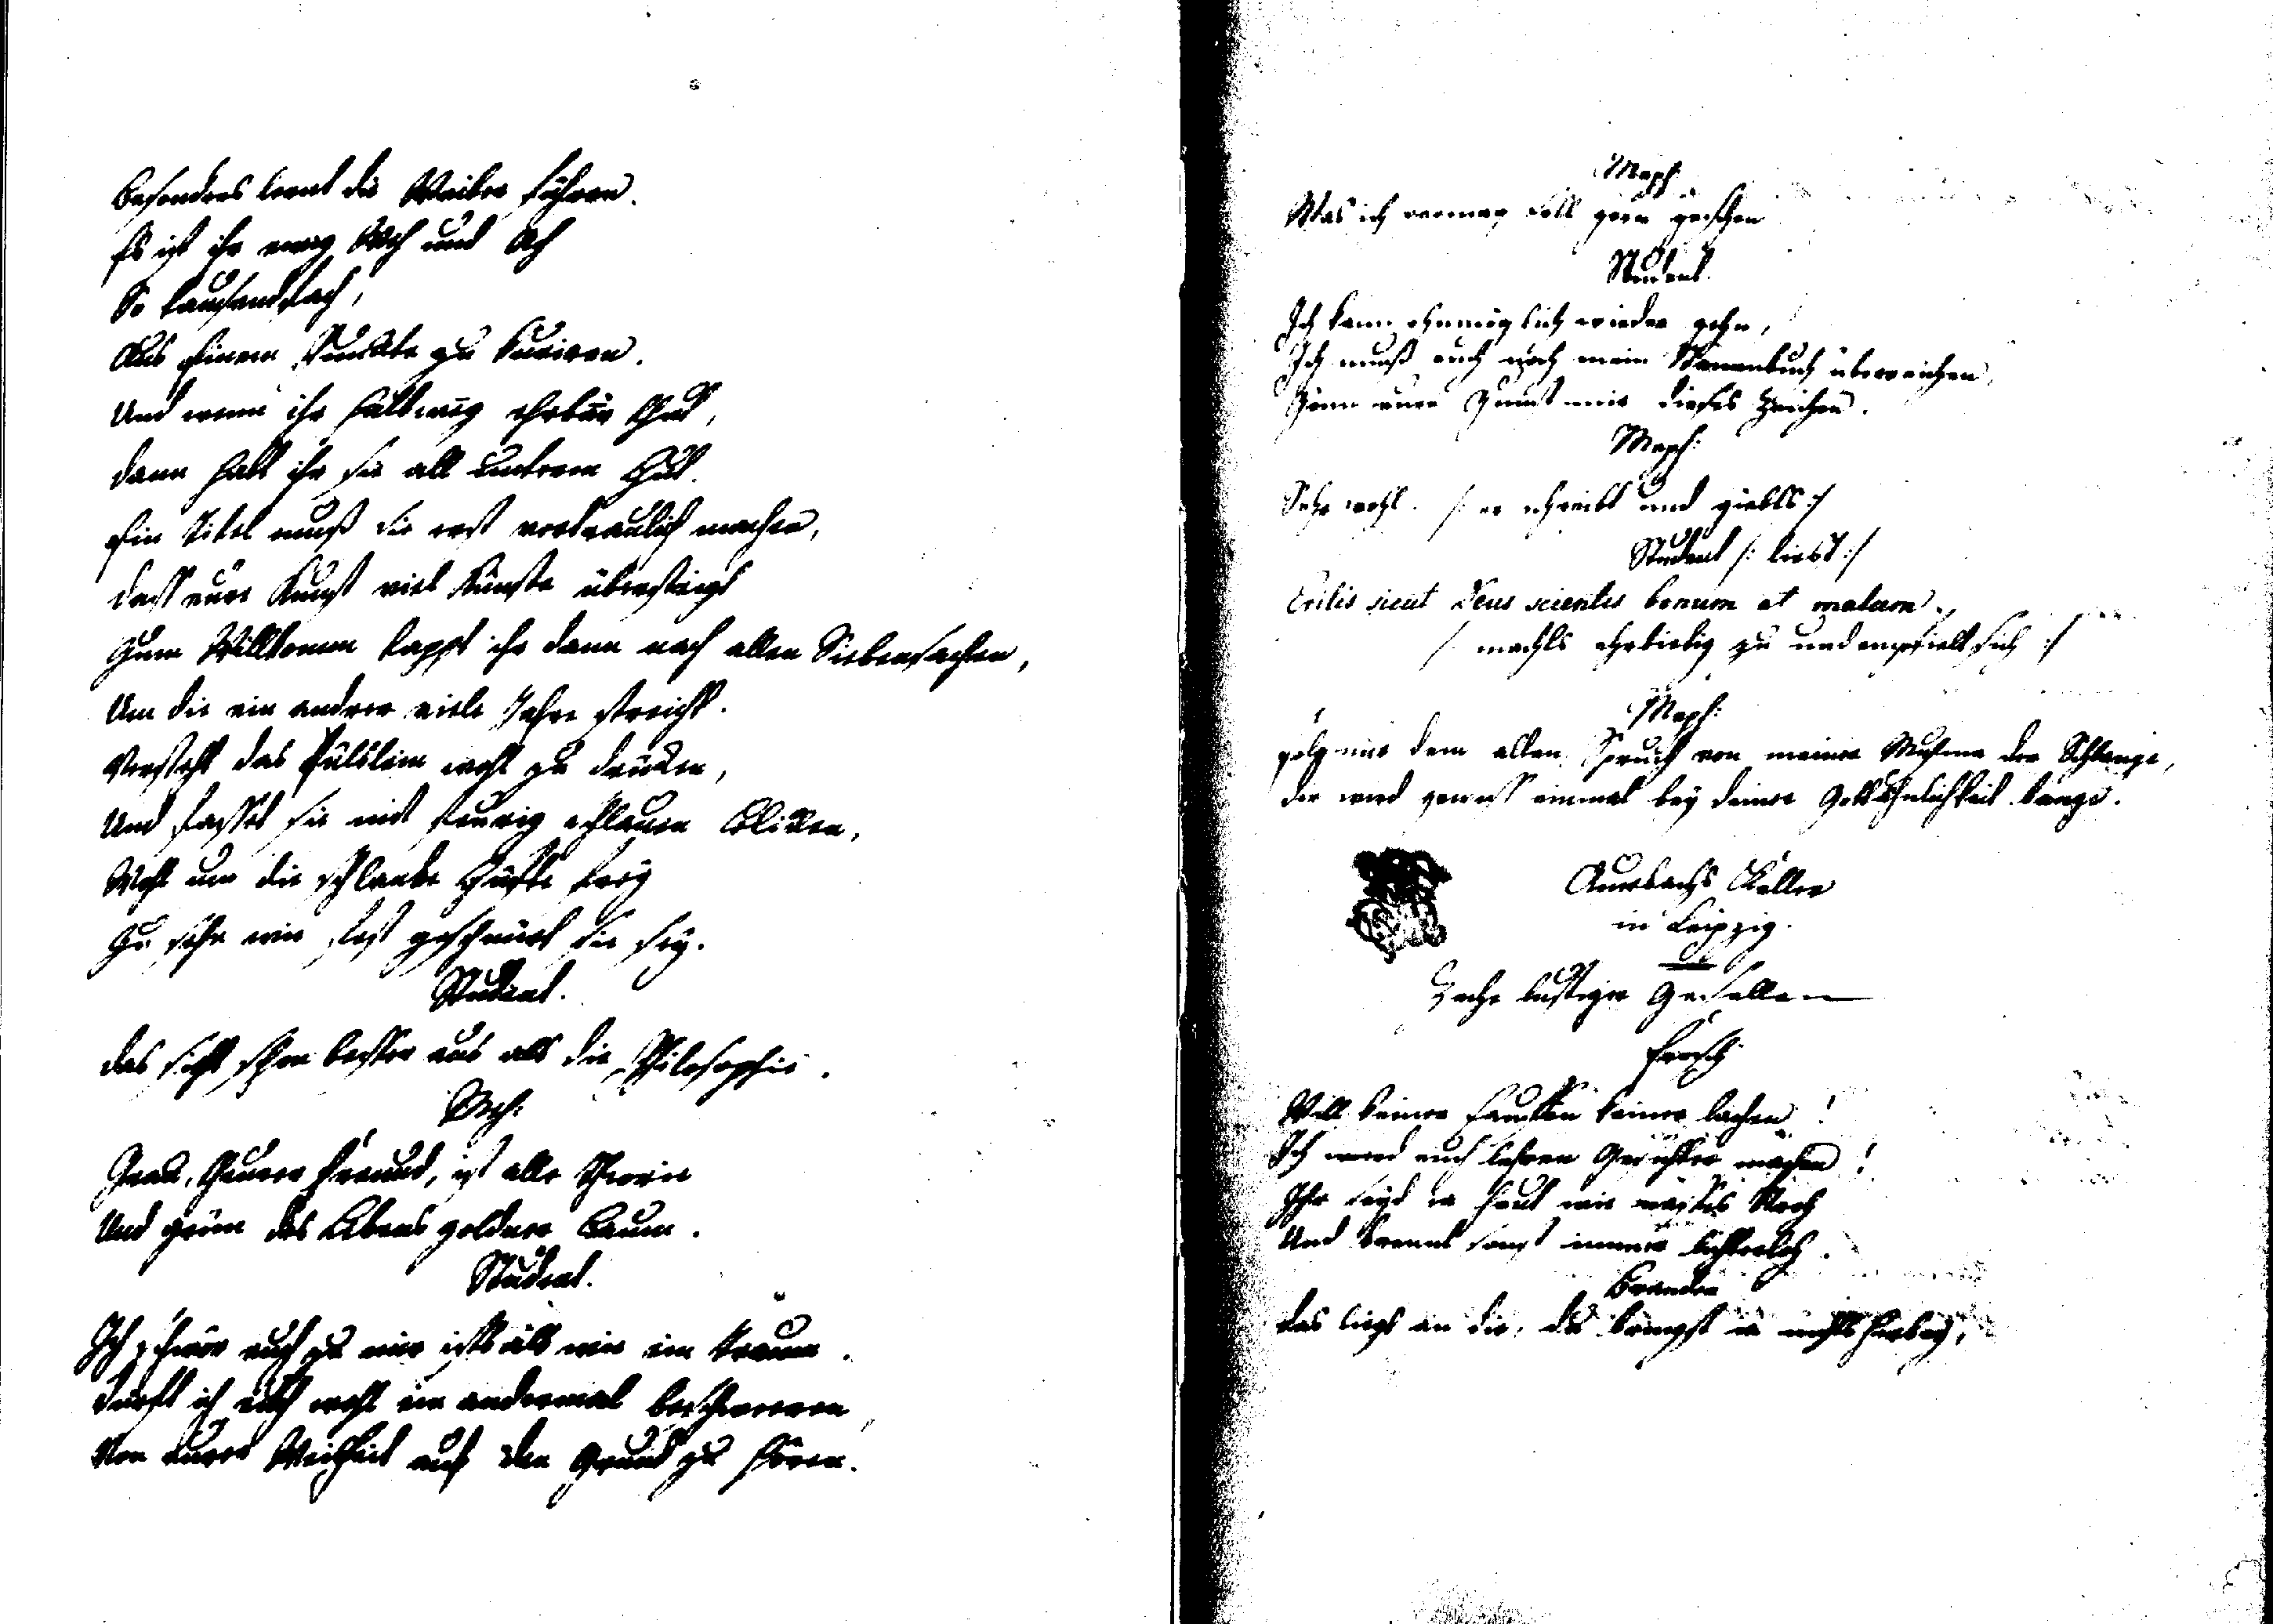 Besonders lernt die Weiber führen.
Es ist ihr ewig Weh und Ach
So tausendfach,
Aus Einem Punckte zu kuriren.
Und wenn ihr halbweg ehrbar thut,
Dann habt ihr sie all unterm Hut.
Ein Titel muß sie erst vertraulich machen,
Dass eure Kunst viel Künste übersteigt
Zum Willkomm tappt ihr dann nach allen Siebensachen,
Um die ein andrer viele Jahre streicht.
Versteht das Pülslein wohl zu drücken,
Und fasset sie mit feurig schlauen Blicken,
Wohl um die schlanke Hüfte frey
Zu sehn wie fest geschnürt sie sey.
Student.
Das sieht schon besser aus als die Philosophie.
Meph:
Grau, theurer Freund, ist alle Theorie
Und grün des Lebens goldner Baum.
Student.
Ich schwör euch zu mir ists als wie ein Traum.
Dürft ich euch wohl ein andermal beschweeren,
Von eurer Weisheit auf den Grund zu hören.
Meph:
Was ich vermag soll gern geschehen
Student.
Ich kann ohnmöglich wieder gehn,
Ich muß euch noch mein Stammbuch überreichen,
Gönn eure Gunst mir dieses Zeichen.
Meph:
Sehr wohl. /: er schreibt und giebts :/
Student /: liest :/
Eritis sicut Deus scientes bonum et malum.
/: machts ehrbietig zu und empfielt sich :/
Meph:
Folg nur dem alten Spruch von meiner Muhme der Schlange,
Dir wird gewiss einmal bey deiner Gottähnlichkeit bange.
Auerbachs Keller
in Leipzig.
Zeche lustiger Gesellen
Frosch
Will keiner sauffen keiner lachen!
Ich werd euch lehren Gesichter machen!
Ihr seyd ia heut wie nasses Stroh
Und brennt sonst immer lichterloh.
Brander
Das liegt an dir, du bringst ia nichts herbey,